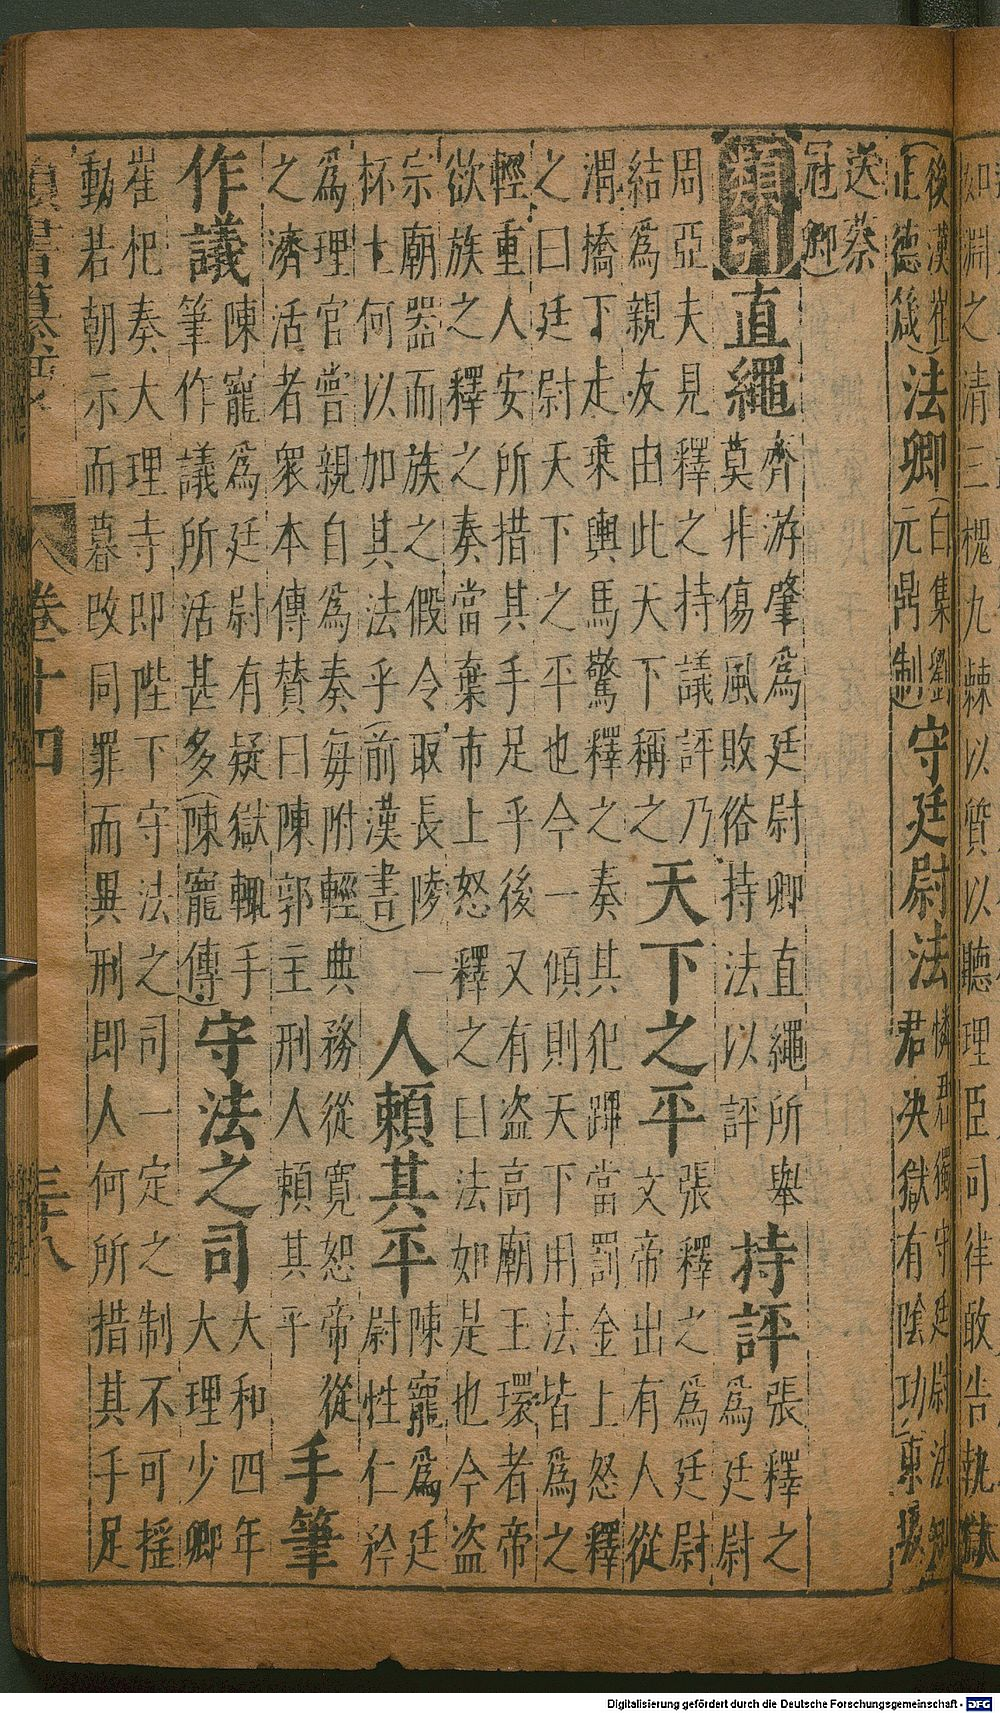 如淵之清三槐九棘以質以聽理臣司律敢告執獄
(後漢崔正德箴)法卿(白集劉元鼎制)守廷尉法憐君獨守廷尉法卿君决獄有陰功(東坡
送蔡冠卿)
類引 直繩 齊游肇爲廷尉卿直繩所舉莫非傷風敗俗持法以評 持評 張釋之爲廷尉
周亞夫見釋之持議評乃結爲親友由此天下稱之 天下之平 張釋之爲廷尉文帝出有人從
渭橋下走乘輿馬驚釋之奏其犯蹕當罰金上怒釋
之曰廷尉天下之平也今一傾則天下用法皆爲之
輕重人安所措其手足乎後又有盗高廟玉環者帝
欲族之釋之奏當棄市上怒釋之曰法如是也今盗
宗廟器而族之假令取長陵一杯土何以加其法乎(前漢書) 人賴其平 陳寵爲廷尉性仁矜
爲理官嘗親自爲奏每附輕典務從寬恕帝從之濟活者衆本傳賛曰陳郭主刑人賴其平 手筆
作議 陳寵爲廷尉有疑獄輒手筆作議所活甚多(陳寵傳) 守法之司 大和四年大理少卿
崔杞奏大理寺即陛下守法之司一定之制不可揺
動若朝示而暮改同罪而異刑即人何所措其手足
卷十四 三十八
Digitalisierung gefördert durch die Deutsche Forschungsgemeinschaft - DFG